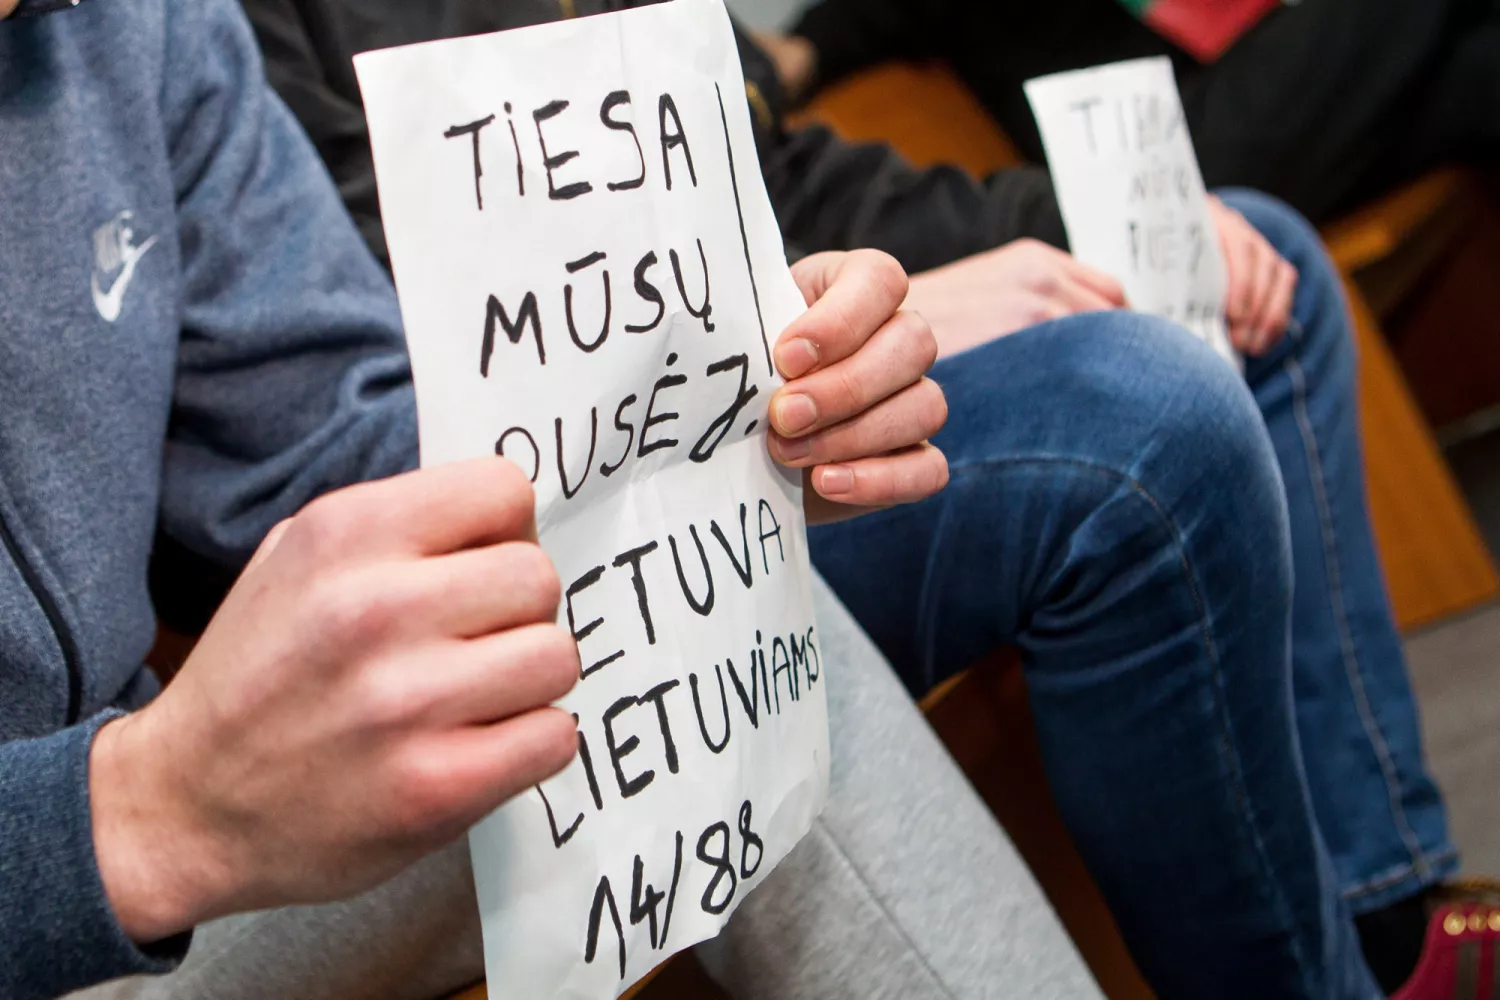 TiESA
MŪSŲ
PUSĖJ.
LIETUVA
LIETUViAMS
14/88
TIESA
MŪSŲ